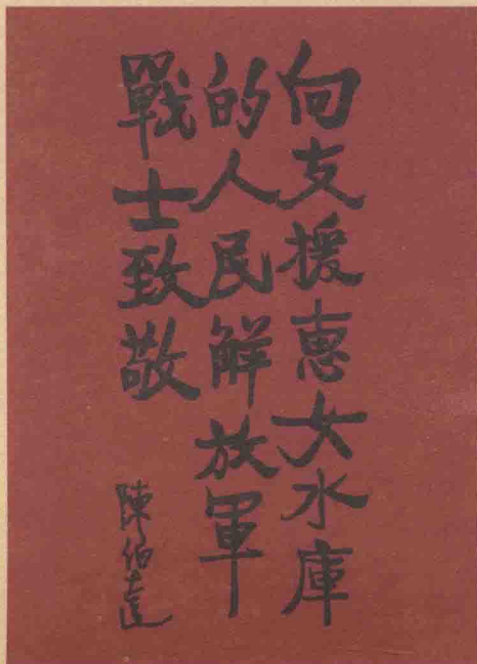 向支援惠女水庫
的人民解放軍
戰士致敬
陳伯達